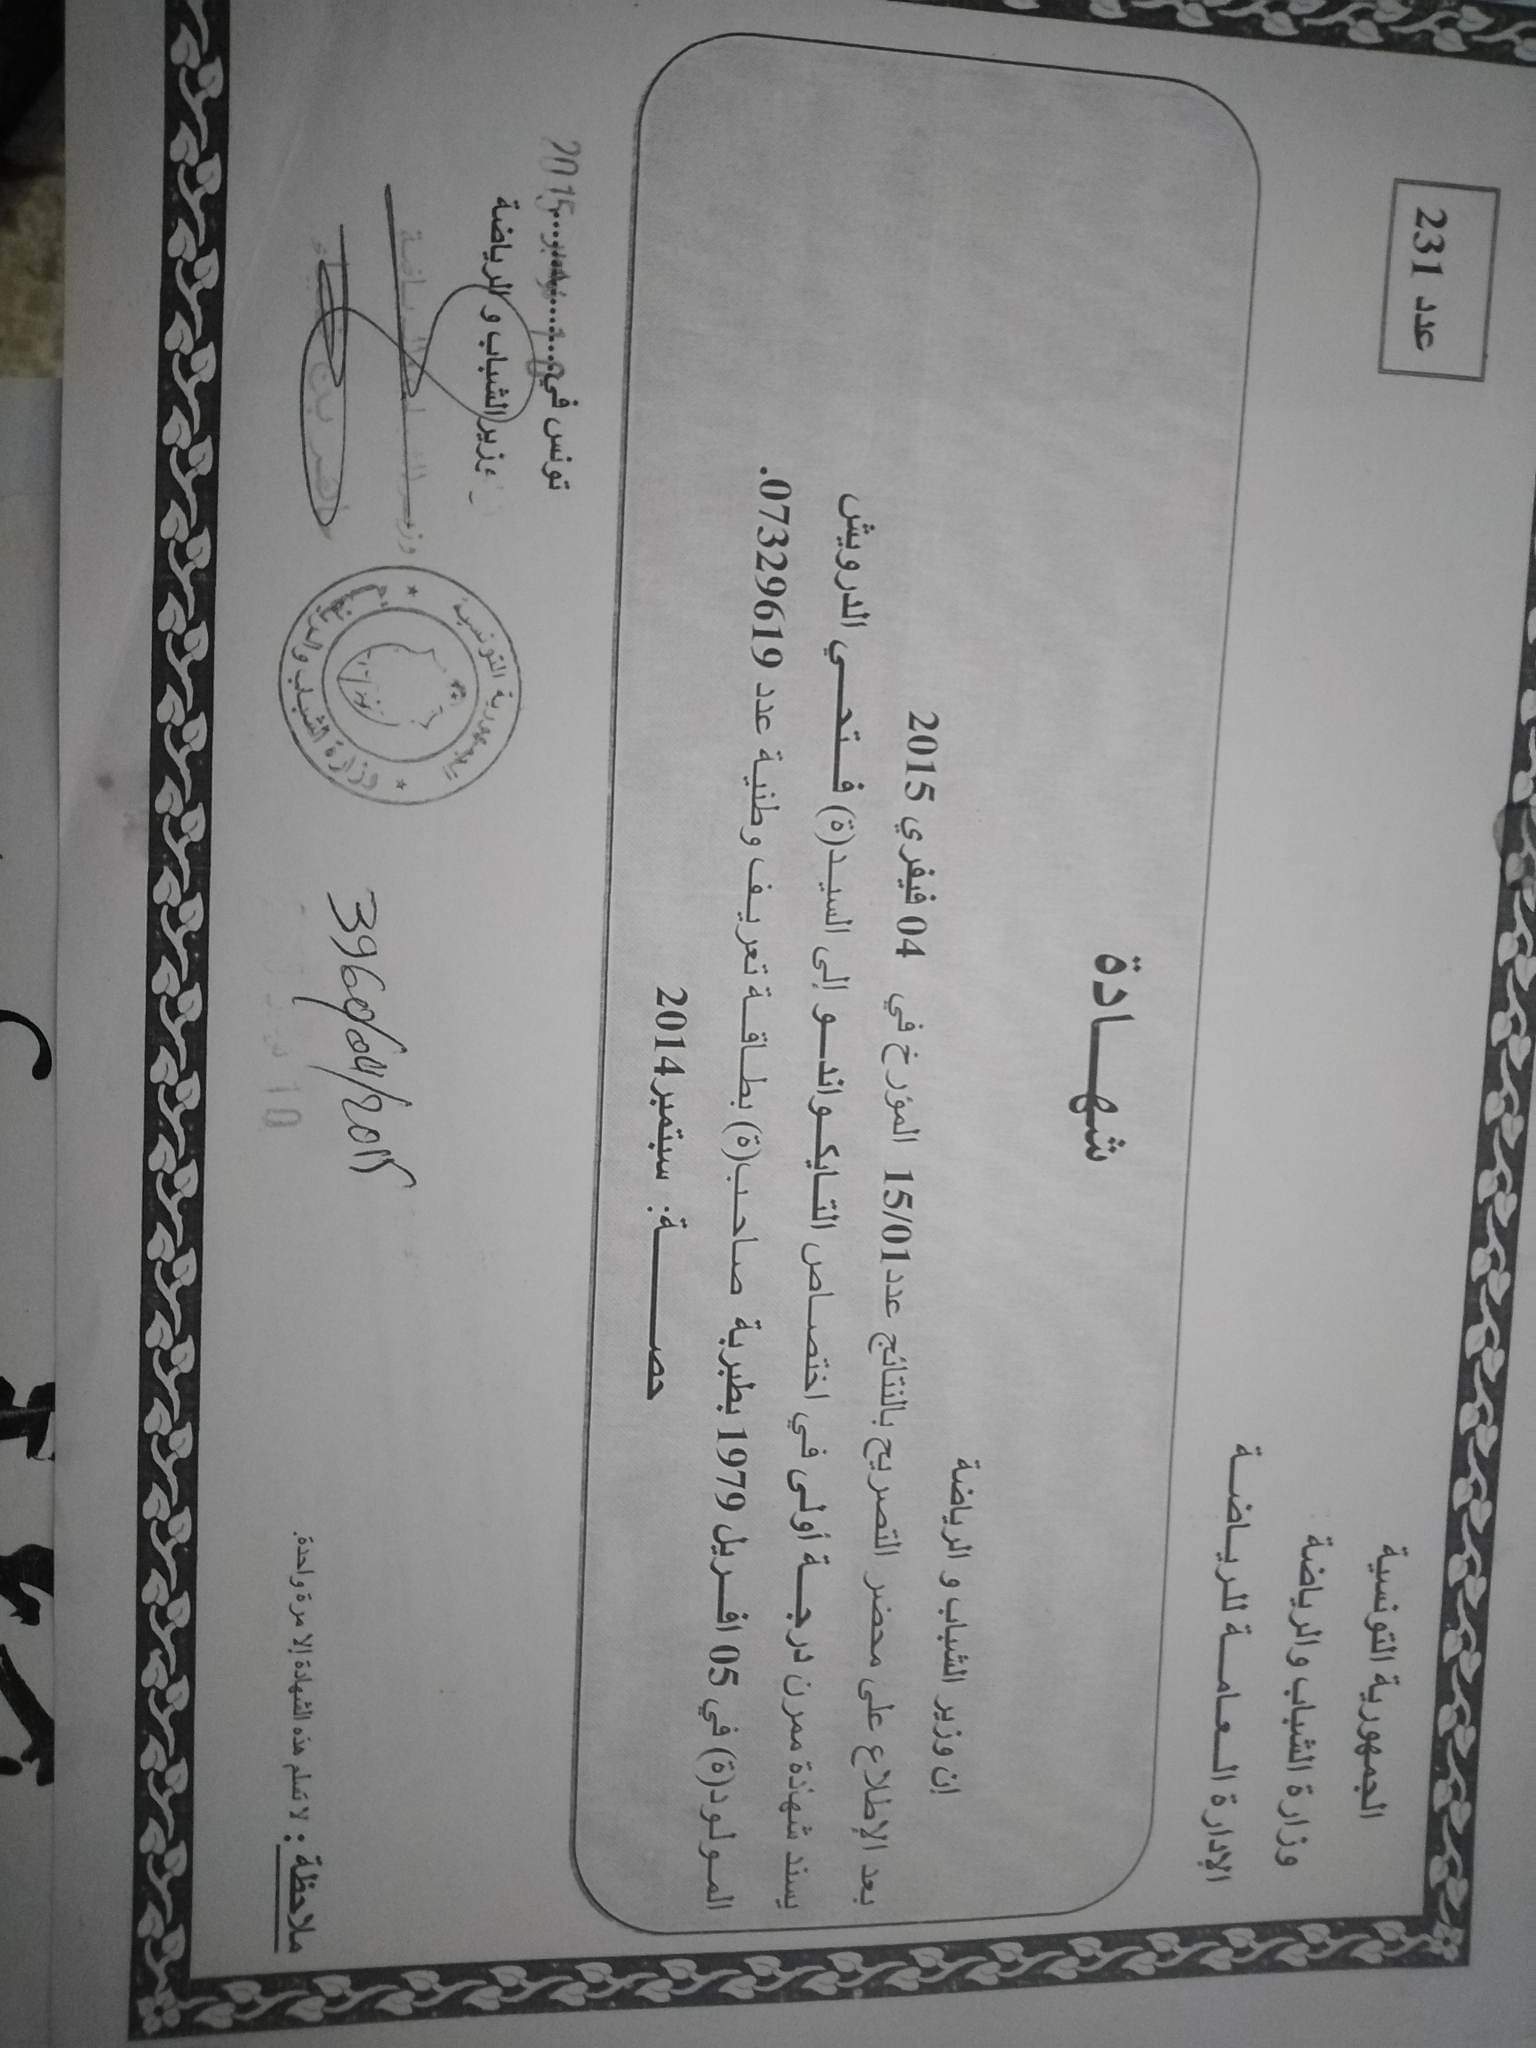 الجمهورية التونسية
وزارة الشباب والرياضة
الإدارة العامة للرياضة
عدد 231
شهادة
إن وزير الشباب و الرياضة
بعد الإطلاع على محضر التصريح بالنتائج عدد 15/01 المؤرخ في 04 فيفري 2015
يسند شهادة ممرن درجة أولى في اختصاص التايكواندو إلى السيد(ة) فتحي الدرويش
المولود(ة) في 05 افريل 1979 بطبرية صاحب(ة) بطاقة تعريف وطنية عدد 07329619.
حصة: سبتمبر 2014
تونس في 2015
وزير الشباب و الرياضة
الجمهورية التونسية
وزارة الشباب والرياضة
ملاحظة : لا تسلم هذه الشهادة إلا مرة واحدة.